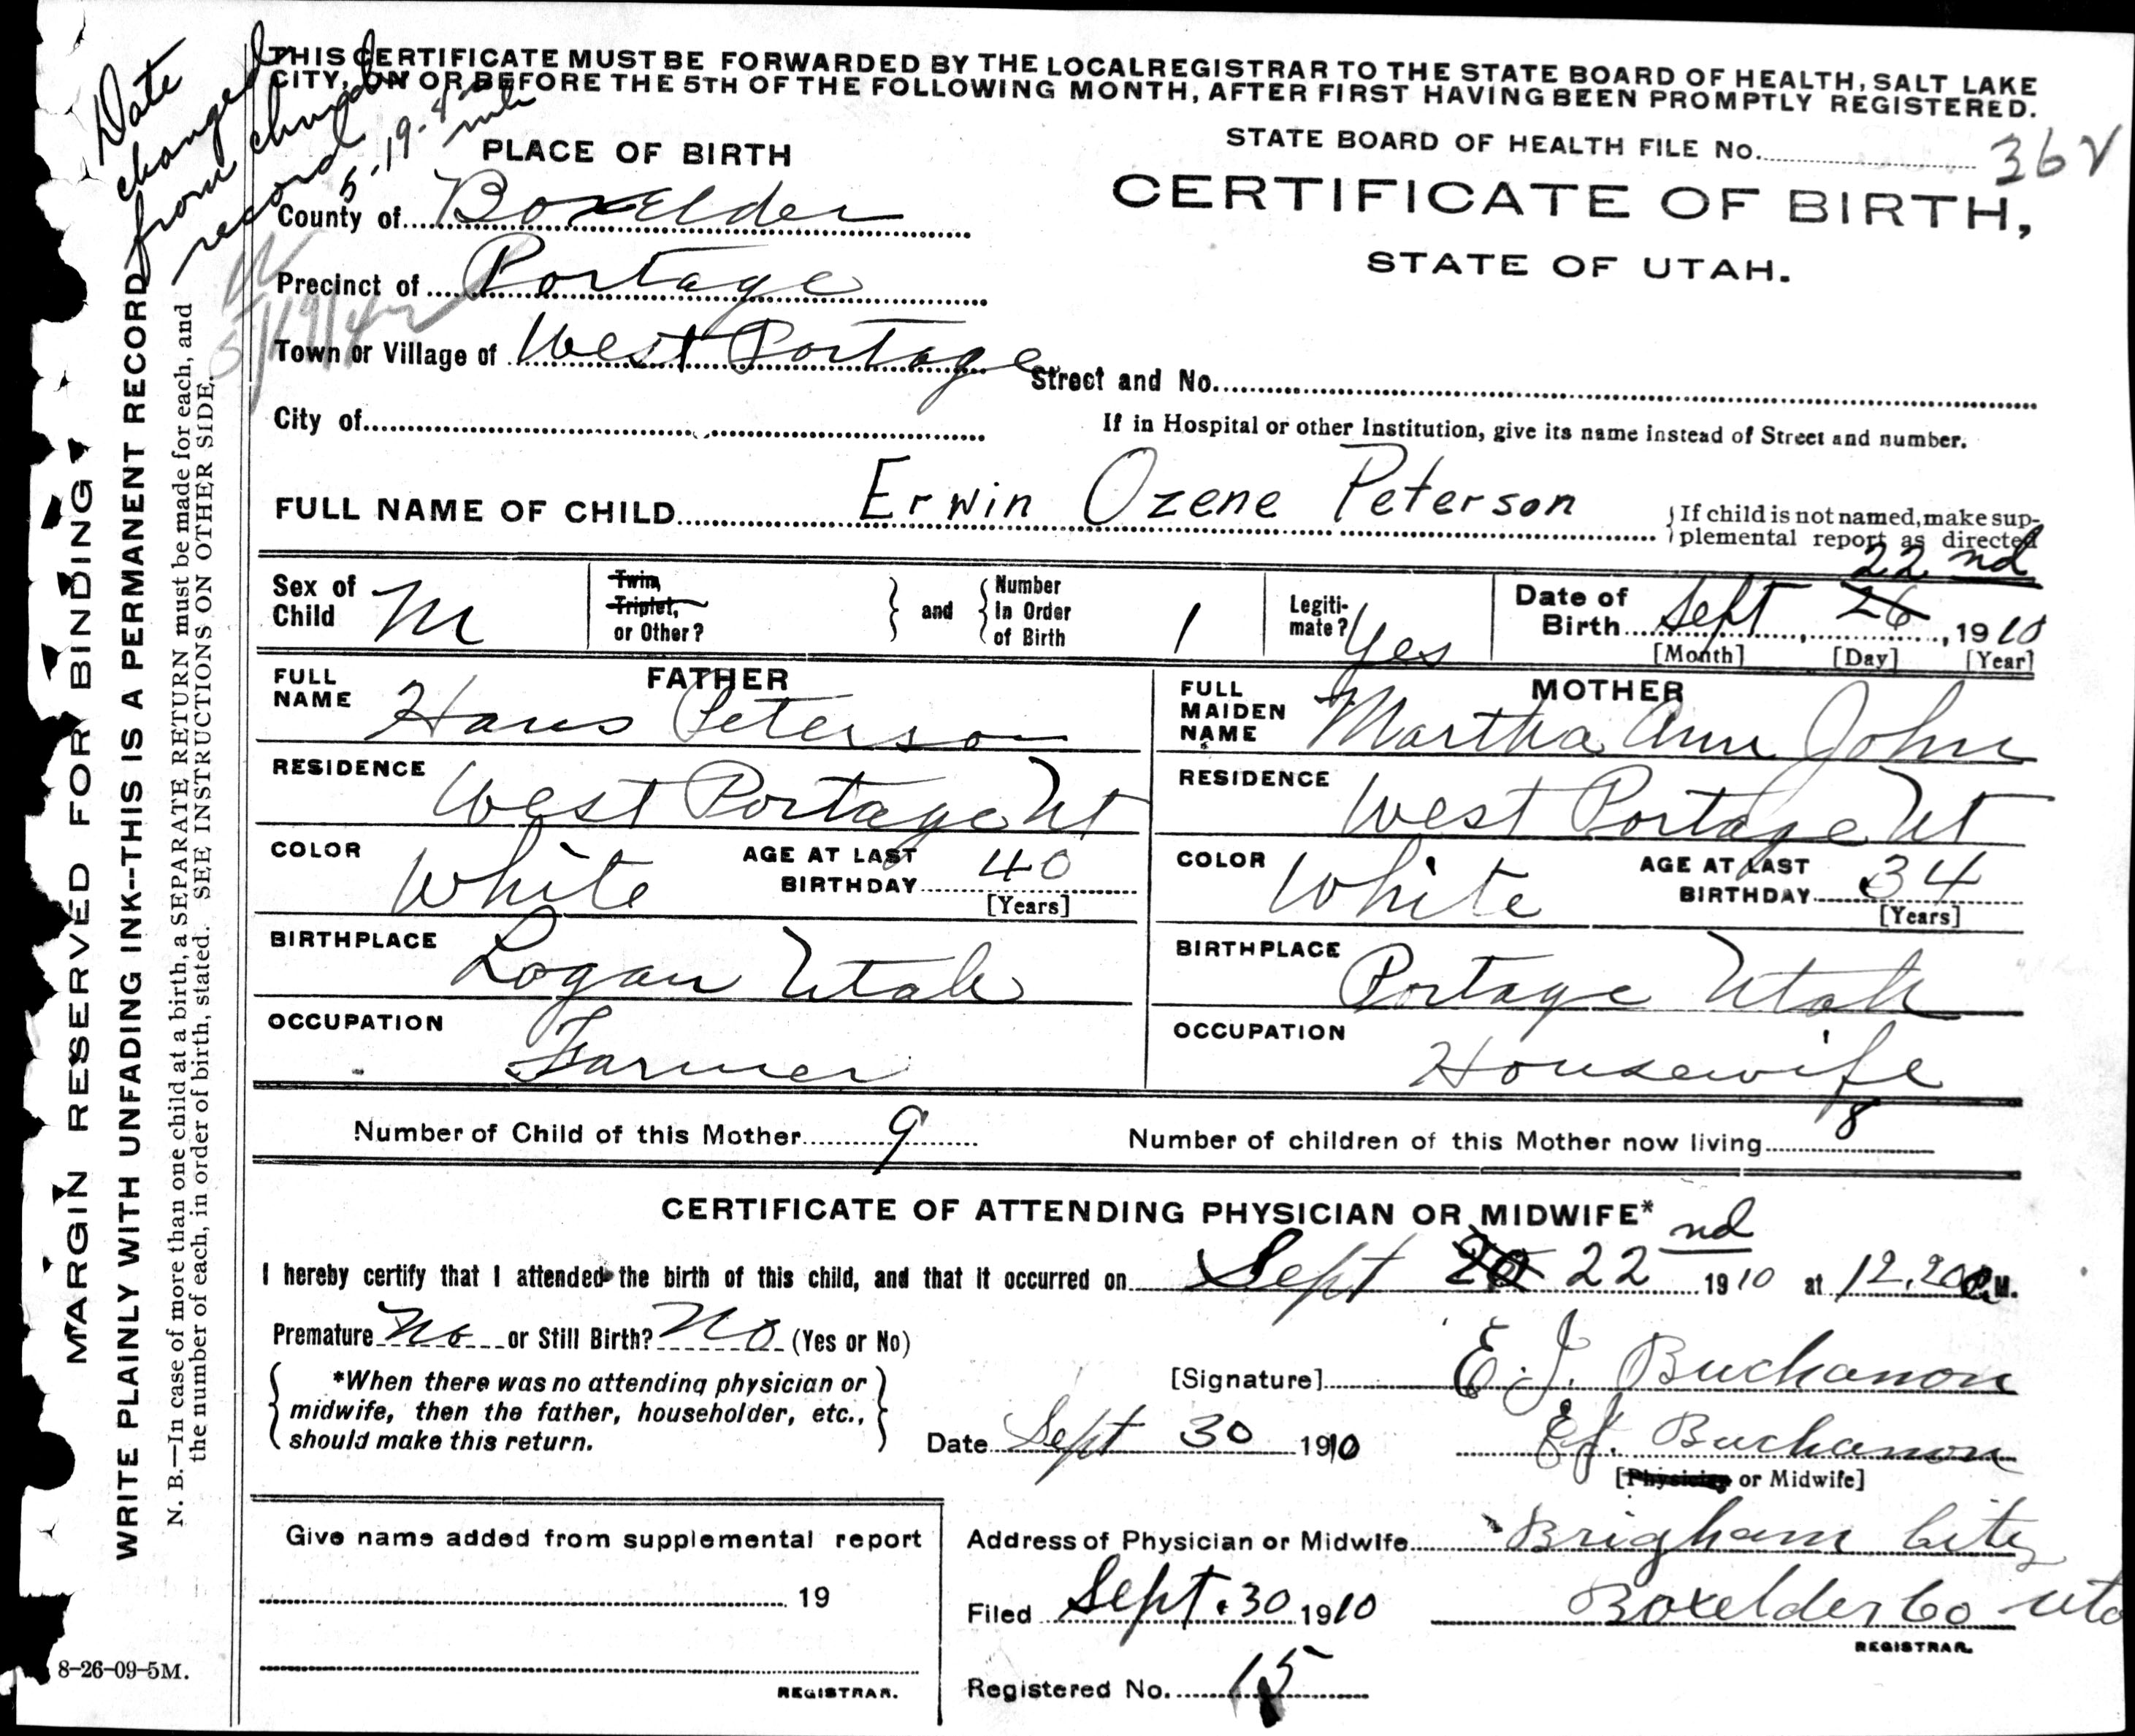 Date
changed
from church
record
5-19-4
THIS CERTIFICATE MUST BE FORWARDED BY THE LOCAL REGISTRAR TO THE STATE BOARD OF HEALTH, SALT LAKE
CITY, ON OR BEFORE THE 5TH OF THE FOLLOWING MONTH, AFTER FIRST HAVING BEEN PROMPTLY REGISTERED.
PLACE OF BIRTH
STATE BOARD OF HEALTH FILE No. 36
CERTIFICATE OF BIRTH,
STATE OF UTAH.
County of Boxelder
Precinct of Portage
5/19/42
Town or Village of West Portage
Street and No.
City of
If in Hospital or other Institution, give its name instead of Street and number.
FULL NAME OF CHILD Erwin Ozene Peterson
If child is not named, make sup-
plemental report as directed
Sex of Child M
Twin, Triplet, or Other?
and Number In Order of Birth 1
Legiti-mate? Yes
Date of Birth Sept 26 22nd, 1910
[Month] [Day] [Year]
FATHER
FULL NAME Hans Peterson
RESIDENCE West Portage Ut
COLOR White AGE AT LAST BIRTHDAY 40
[Years]
BIRTHPLACE Logan Utah
OCCUPATION Farmer
MOTHER
FULL MAIDEN NAME Martha Ann John
RESIDENCE West Portage Ut
COLOR White AGE AT LAST BIRTHDAY 34
[Years]
BIRTHPLACE Portage Utah
OCCUPATION Housewife
Number of Child of this Mother 9
Number of children of this Mother now living 8
CERTIFICATE OF ATTENDING PHYSICIAN OR MIDWIFE*
I hereby certify that I attended the birth of this child, and that it occurred on Sept 26 22 nd 1910 at 12.20 M.
Premature No or Still Birth? No (Yes or No)
*When there was no attending physician or
midwife, then the father, householder, etc.,
should make this return.
[Signature] E. J. Buchanon
Date Sept 30 1910
E J. Buchanon
[Physician or Midwife]
Give name added from supplemental report
19
REGISTRAR.
Address of Physician or Midwife Brigham City
Filed Sept. 30 1910
Boxelder Co Uta
REGISTRAR.
Registered No. 15
MARGIN RESERVED FOR BINDING
WRITE PLAINLY WITH UNFADING INK--THIS IS A PERMANENT RECORD
N. B.—In case of more than one child at a birth, a SEPARATE RETURN must be made for each, and
the number of each, in order of birth, stated. SEE INSTRUCTIONS ON OTHER SIDE.
8-26-09-5M.